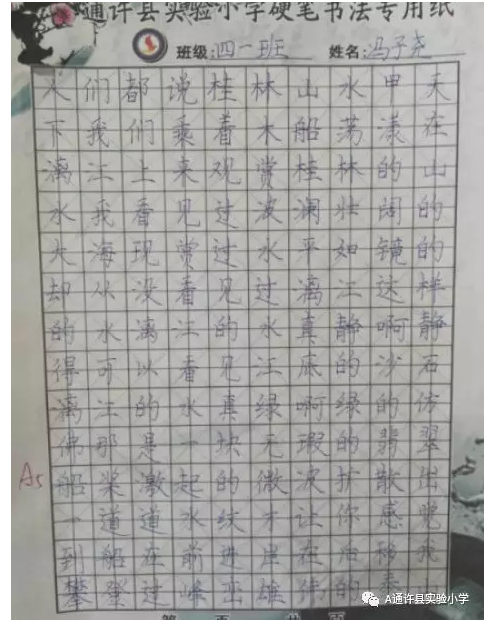 通许县实验小学硬笔书法专用纸
班级:四一班 姓名:冯子尧
人们都说桂林山水甲天
下我们乘着木船荡漾在
漓江上来观赏桂林的山
水我看见过波澜壮阔的
大海现赏过水平如镜的
却从没看见过漓江这样
的水漓江的水真静啊静
得可以看见江底的沙石
漓江的水真绿啊绿的仿
佛那是一块无瑕的翡翠
船桨激起的微波扩散出
一道道水纹才让你感觉
到船在前进岸在后移我
攀登过峰峦雄伟的泰
A5
第 页 共 页
A通许县实验小学